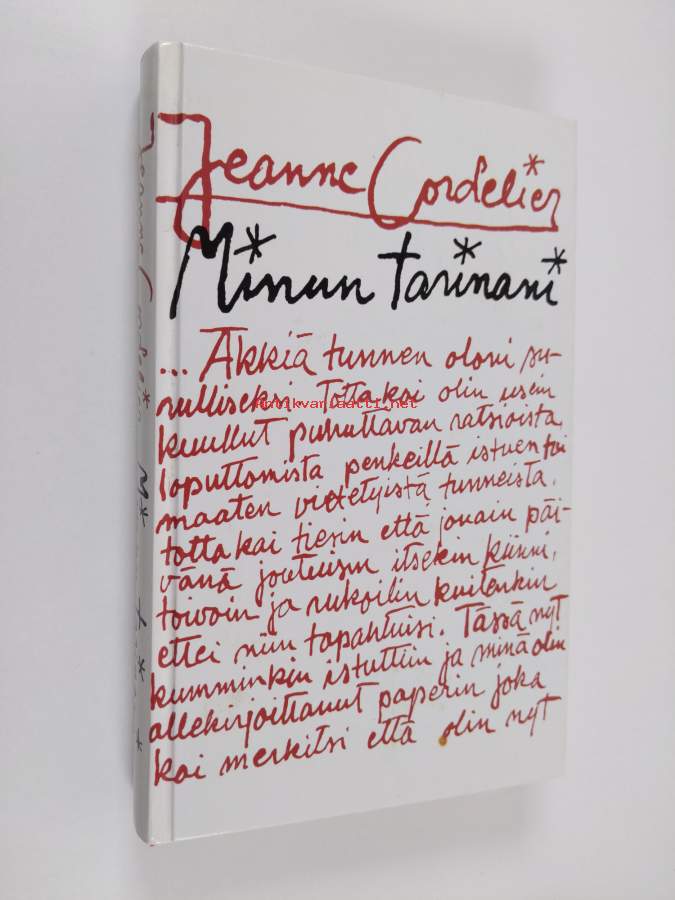 Jeanne Cordelier
Minun tarinani
... Äkkiä tunnen oloni su-
rulliseksi. Totta kai olin usein
kuullut puhuttavan ratsioista,
loputtomista penkeillä istuen tai
maaten vietetyistä tunneista,
totta kai tiesin että jonain päi-
vänä joutuisin itsekin kiinni,
toivoin ja rukoilin kuitenkin
ettei niin tapahtuisi. Tässä nyt
kumminkin istuttiin ja minä olin
allekirjoittanut paperin joka
kai merkitsi että olin nyt
antikvariaatti.net
Jeanne Cordelier Minun tarinani